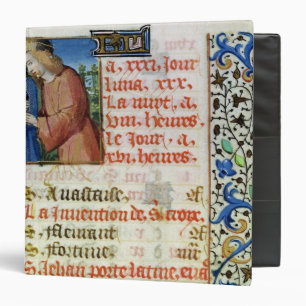 a. xxxi. Jour
luna. xxx.
La nuyt. a
viii. heures
le Jour. a
xvi. heures.
S. Auastaise.
La Invention de S. croix
S. fleurant
S. fortune
S. Jehan porte latine. eua